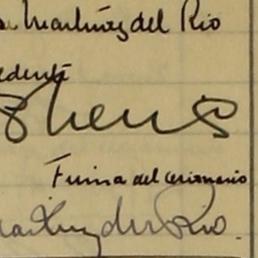 Martínez del Rio
edente
Firma del cesionario
Martínez del Rio.